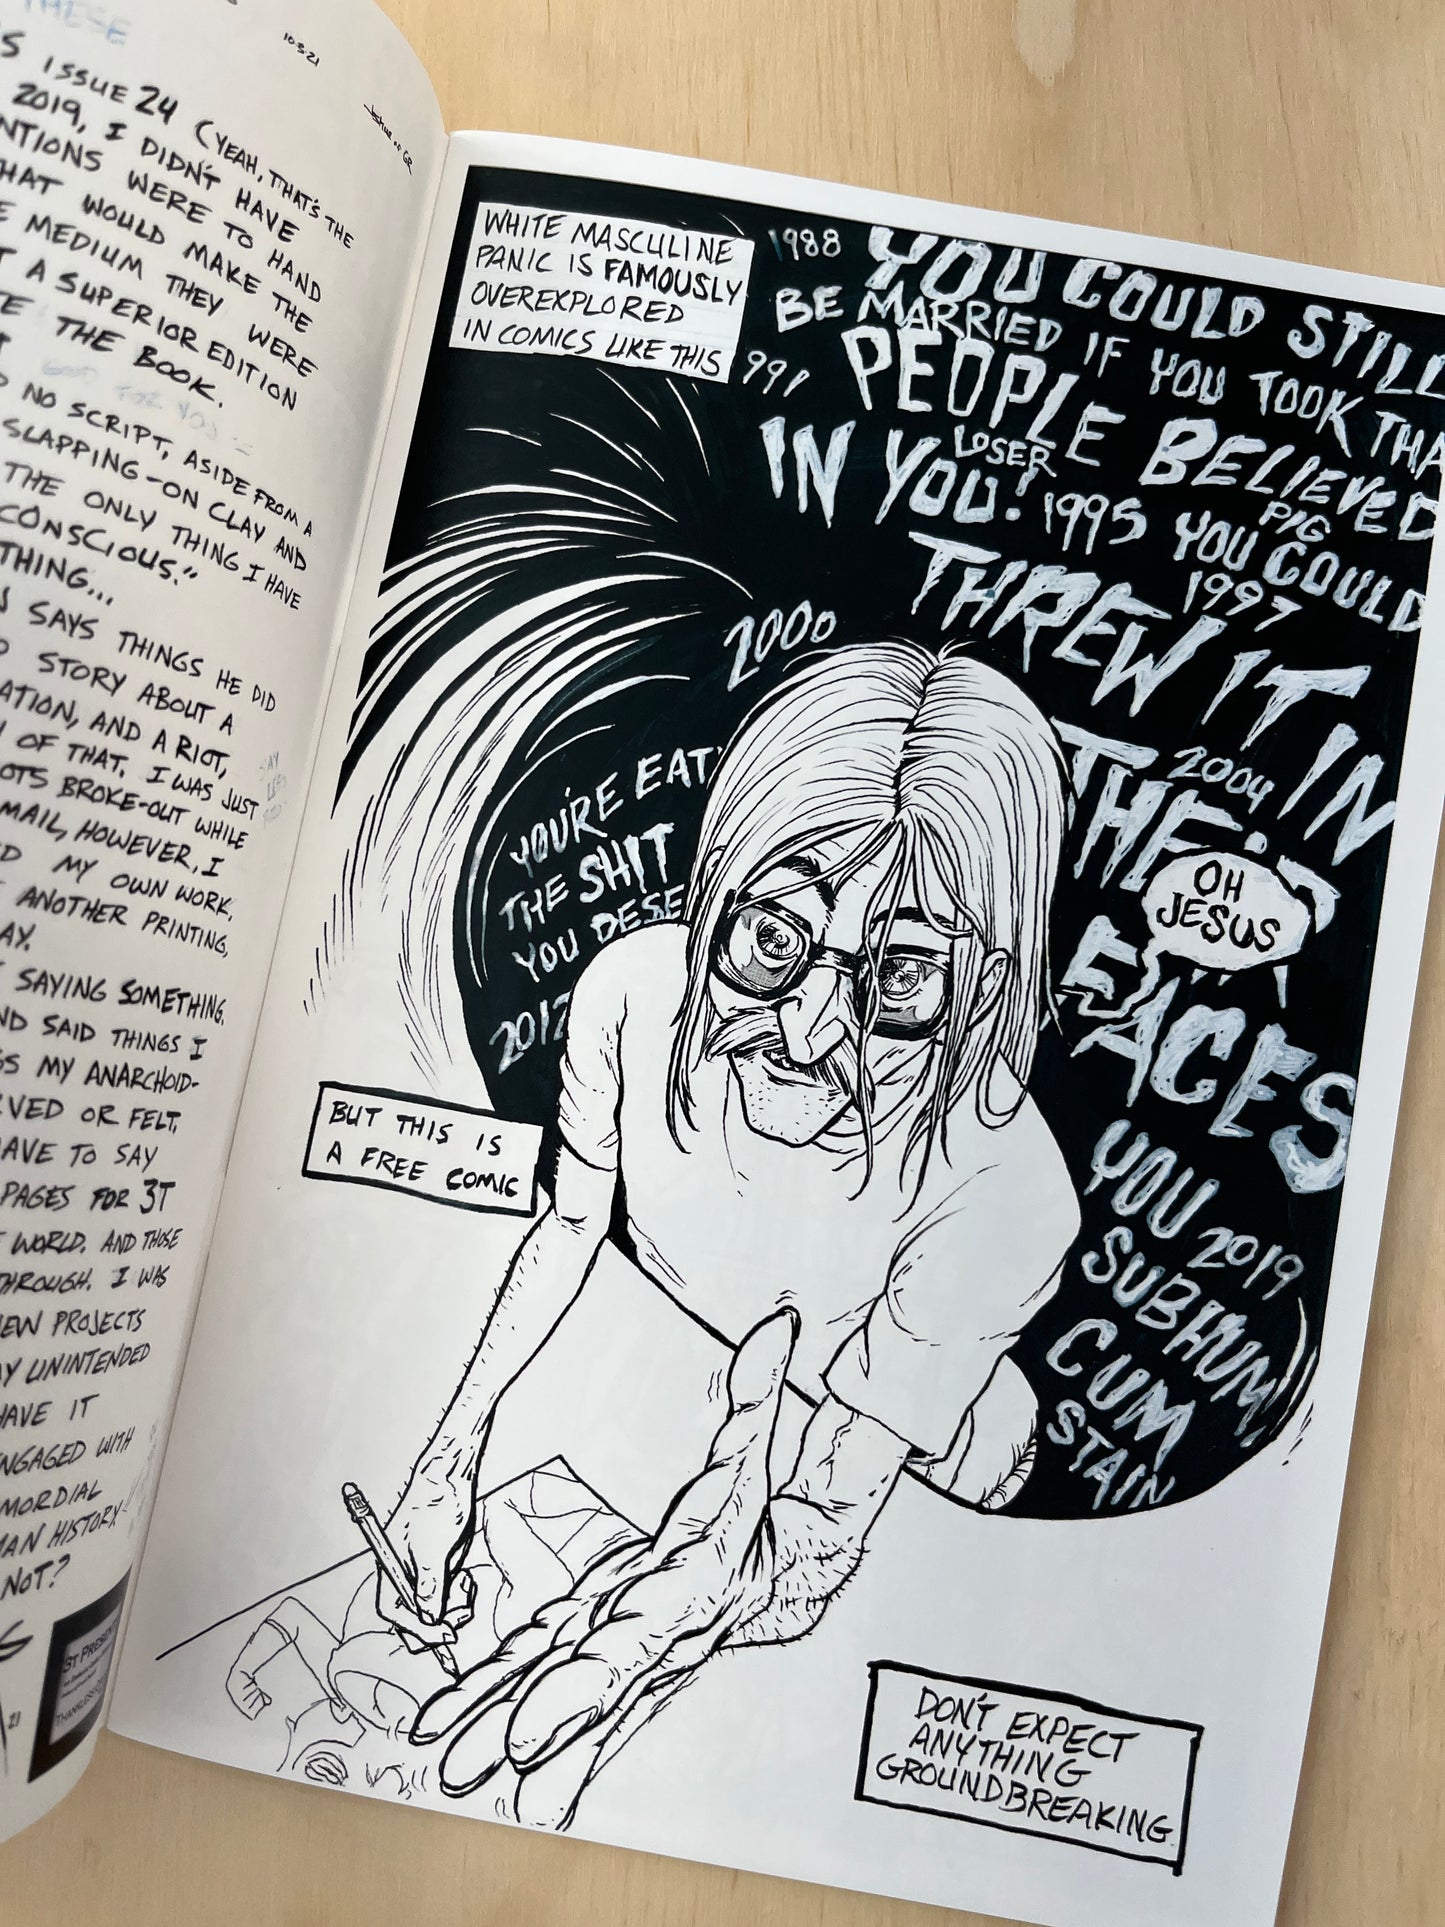 THESE
10.3.21
S ISSUE 24 (YEAH, THAT'S THE
2019, I DIDN'T HAVE
NTIONS WERE TO HAND
HAT WOULD MAKE THE
E MEDIUM THEY WERE
T A SUPERIOR EDITION
TE THE BOOK.
GOOD FOR YOU
D NO SCRIPT, ASIDE FROM A
SLAPPING-ON CLAY AND
THE ONLY THING I HAVE
CONSCIOUS."
THING...
N SAYS THINGS HE DID
D STORY ABOUT A
ATION, AND A RIOT,
N OF THAT. I WAS JUST
OTS BROKE-OUT WHILE
MAIL, HOWEVER, I
ED MY OWN WORK,
ANOTHER PRINTING,
AY.
SAYING SOMETHING.
ND SAID THINGS I
GS MY ANARCHOID-
RVED OR FELT.
AVE TO SAY
PAGES FOR 3T
T WORLD. AND THOSE
THROUGH. I WAS
EW PROJECTS
AY UNINTENDED
HAVE IT
NGAGED WITH
MORDIAL
MAN HISTORY-
NOT?
21
3T PRESENT
WHITE MASCULINE
PANIC IS FAMOUSLY
OVEREXPLORED
IN COMICS LIKE THIS
1988 YOU COULD STILL
BE MARRIED IF YOU TOOK THA
1991 PEOPLE BELIEVED
IN YOU!
LOSER
PIG
1995 YOU COULD
1997
THREW IT IN
2000
THEIR
2004
FACES
OH
JESUS
YOU'RE EAT
THE SHIT
YOU DESE
2012
YOU 2019
SUBHUM
CUM
STAIN
BUT THIS IS
A FREE COMIC
DON'T EXPECT
ANYTHING
GROUNDBREAKING